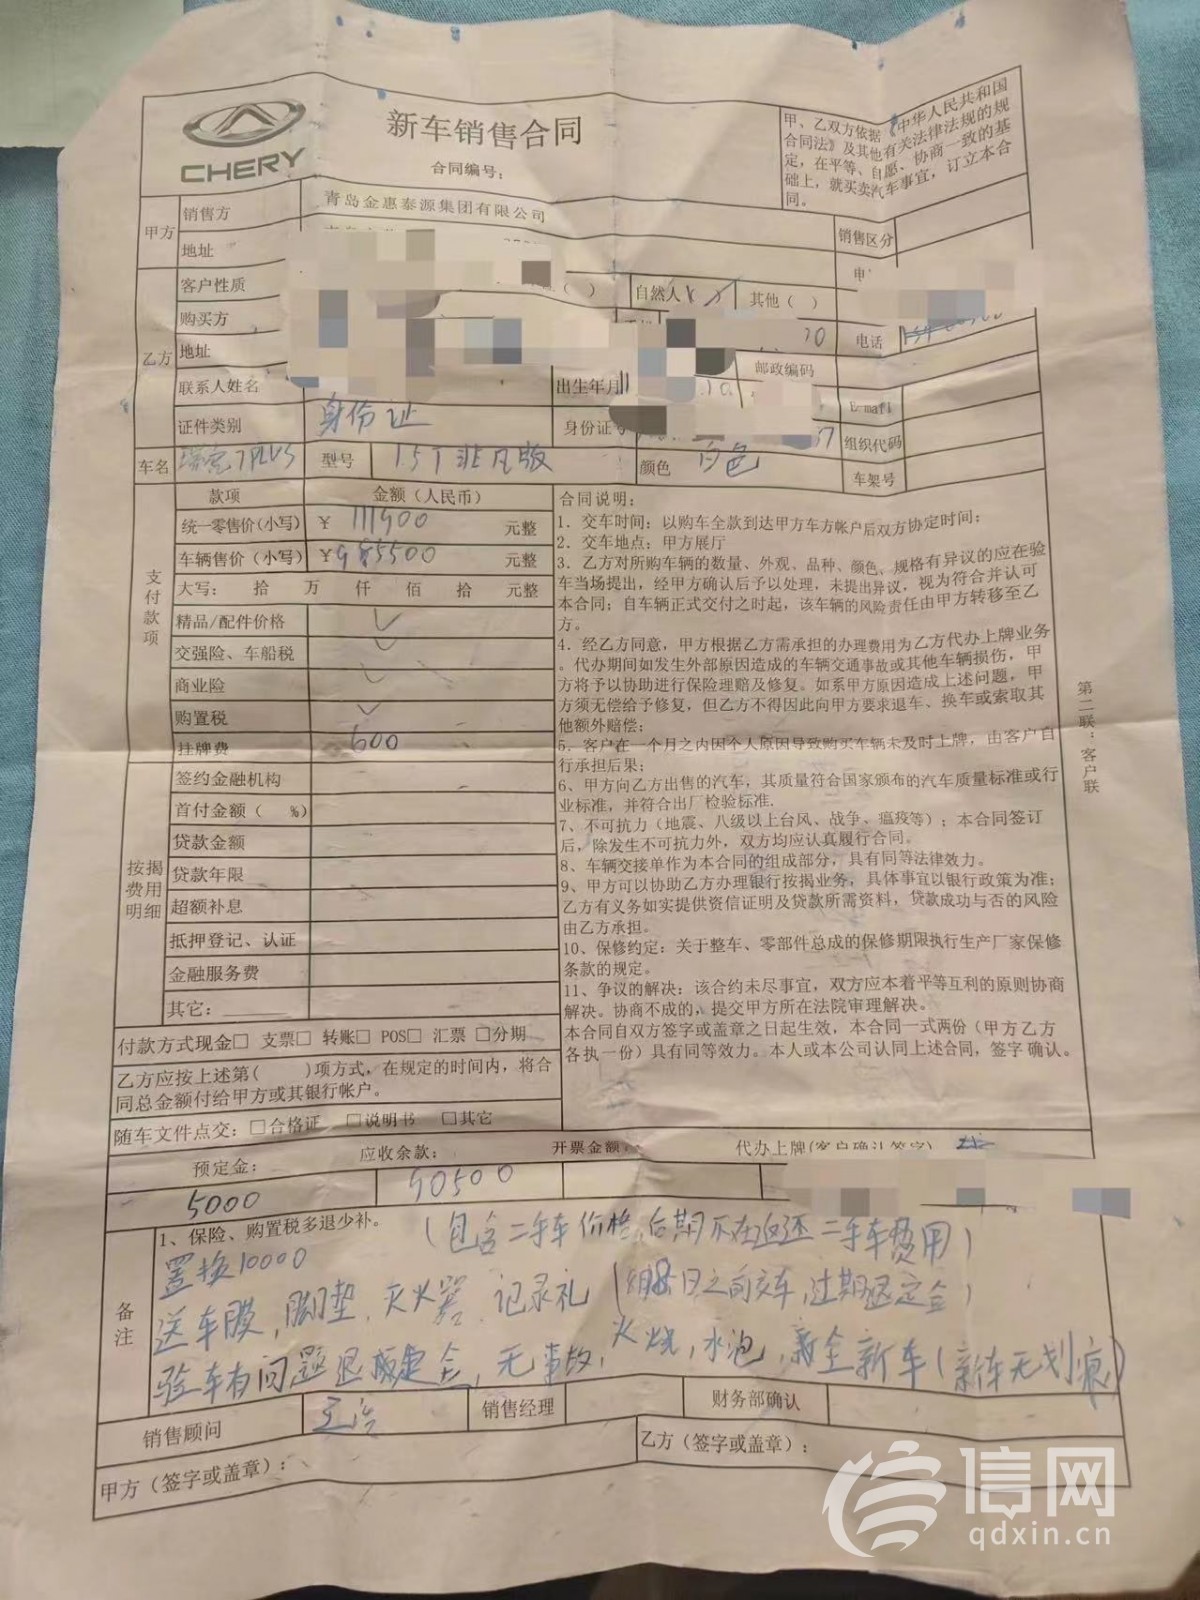 CHERY
新车销售合同
合同编号：
甲、乙双方依据《中华人民共和国
合同法》及其他有关法律法规的规
定，在平等、自愿、协商一致的基
础上，就买卖汽车事宜，订立本合
同。
甲方
销售方
青岛金惠泰源集团有限公司
地址
销售区分
乙方
客户性质
自然人
其他（ ）
购买方
电话
地址
邮政编码
联系人姓名
出生年月
E-mail
证件类别
身份证
身份证号
组织代码
车名
7PLUS
型号
1.5T非凡版
颜色
白色
车架号
支付款项
款项
金额（人民币）
统一零售价(小写)
￥ 111900 元整
车辆售价（小写）
￥ 元整
大写： 拾 万 仟 佰 拾 元整
精品/配件价格
交强险、车船税
商业险
购置税
挂牌费
600
按揭费用明细
签约金融机构
首付金额（ %）
贷款金额
贷款年限
超额补息
抵押登记、认证
金融服务费
其它：
付款方式现金□ 支票□ 转账□ POS□ 汇票 □分期
乙方应按上述第( )项方式，在规定的时间内，将合
同总金额付给甲方或其银行帐户。
随车文件点交：□合格证 □说明书 □其它
合同说明：
1．交车时间：以购车全款到达甲方车方帐户后双方协定时间；
2．交车地点：甲方展厅
3．乙方对所购车辆的数量、外观、品种、颜色、规格有异议的应在验
车当场提出，经甲方确认后予以处理，未提出异议，视为符合并认可
本合同；自车辆正式交付之时起，该车辆的风险责任由甲方转移至乙
方。
4．经乙方同意，甲方根据乙方需承担的办理费用为乙方代办上牌业务
。代办期间如发生外部原因造成的车辆交通事故或其他车辆损伤，甲
方将予以协助进行保险理赔及修复。如系甲方原因造成上述问题，甲
方须无偿给予修复，但乙方不得因此向甲方要求退车、换车或索取其
他额外赔偿；
5．客户在一个月之内因个人原因导致购买车辆未及时上牌，由客户自
行承担后果；
6、甲方向乙方出售的汽车，其质量符合国家颁布的汽车质量标准或行
业标准，并符合出厂检验标准.
7、不可抗力（地震、八级以上台风、战争、瘟疫等）；本合同签订
后，除发生不可抗力外，双方均应认真履行合同。
8、车辆交接单作为本合同的组成部分，具有同等法律效力。
9、甲方可以协助乙方办理银行按揭业务，具体事宜以银行政策为准；
乙方有义务如实提供资信证明及贷款所需资料，贷款成功与否的风险
由乙方承担。
10、保修约定：关于整车、零部件总成的保修期限执行生产厂家保修
条款的规定。
11、争议的解决：该合约未尽事宜，双方应本着平等互利的原则协商
解决。协商不成的，提交甲方所在法院审理解决。
本合同自双方签字或盖章之日起生效，本合同一式两份（甲方乙方
各执一份）具有同等效力。本人或本公司认同上述合同，签字确认。
第二联：客户联
预定金：
应收余款：
开票金额：
代办上牌(客户确认签字)
5000
90500
备注
1、保险、购置税多退少补。
（包含二手车价格,后期不在返还二手车费用）
置换10000
送车膜,脚垫,灭火器,记录礼
日之前交车,过期退定金）
验车有问题退定金,无事故,火烧,水泡,全新车（新车无划痕）
销售顾问
销售经理
财务部确认
甲方（签字或盖章）：
乙方（签字或盖章）：
信网
qdxin.cn